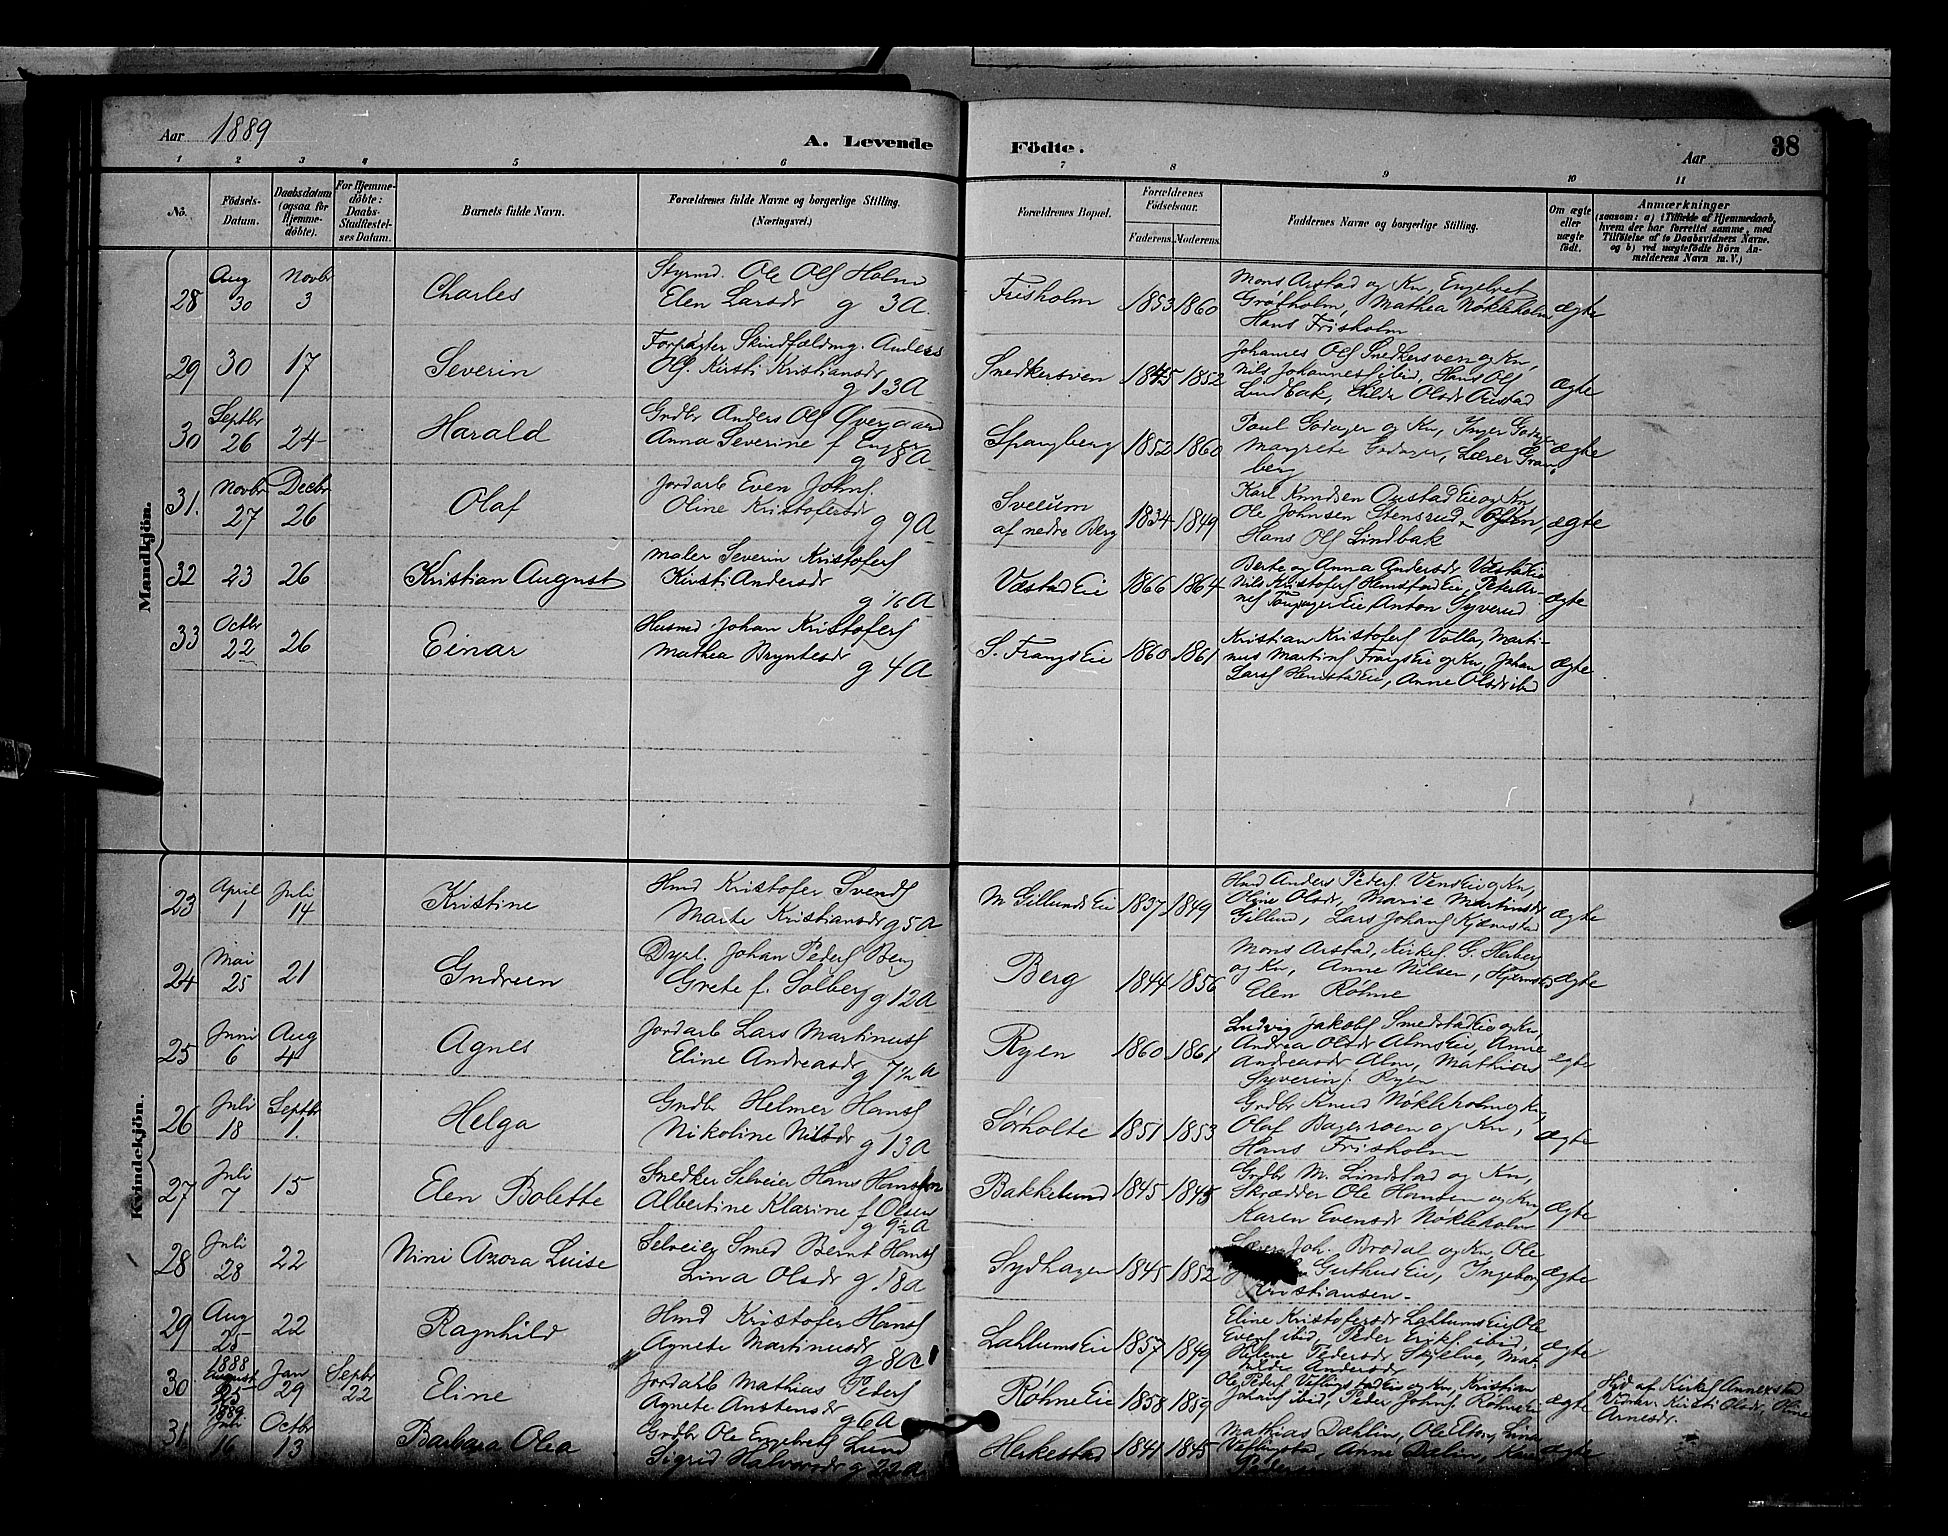 Aar 1889
A. Levende
Födte.
Aar
38
1 2 3 4 5 6 7 8 9 10 11
No.
Födsels-Datum.
Daabsdatum (ogsaa for Hjemme-döbte).
For Hjemme-döbte: Daabs-Stadfæstel-ses Datum.
Barnets fulde Navn.
Forældrenes fulde Navne og borgerlige Stilling. (Næringsvei.)
Forældrenes Bopæl.
Forældrenes Födselsaar.
Faderens. Moderens.
Faddernes Navne og borgerlige Stilling.
Om ægte eller uægte födt.
Anmærkninger
(saasom: a) i Tilfælde af Hjemmedaab, hvem der har forrettet samme, med Tilföielse af to Daabsvidners Navne, og b) ved uægtefödte Börn An-melderens Navn m. V.)
Mandkjön.
28 Aug 30 Novbr 3 Charles Styrmd. Ole Ols Holm
Elen Larsdr g 3 A. Frisholm 1853 1860 Mons Arstad og Kn, Engelret
Grøtholm, Mathea Nökleholm
Hans Frisholm ægte
29 30 17 Severin Forpagter Skindfældmg. Anders
Ols Kirsti Kristiansdr
g 13 A Snedkersven 1845 1852 Johannes Ols Snedkersven og Kn,
Nils Johannes ibid, Hans Ols
Lindbak, Hilda Olsdr Austad ægte
30 Septbr 26 24 Harald Grdbr Anders Ols Overgaard
Anna Severine f Enger
g 8 A Spangberg 1852 1860 Poul Godager og Kn, Inger Godager
Margrete Godager, Lærer Gran
berg ægte
31. Novbr 27 Decbr 26 Olaf Jordarb Even Johns.
Oline Kristofersdr
g 9 A Sveum
af nedre Berg 1834 1849 Karl Knudsen Austad Eie og Kn
Ole Johnsen Stensrud
Hans Ols Lindbak ægte
32 23 26 Kristian August Maler Severin Kristofers
Kirsti Andersdr
g ½ A Væstad Eie 1866 1864 Berte og Anna Andersdr Væstad Eie
Nils Kristofers Hemstad Eie, Peter Ar-
nes Eie Anton Gyverud ægte
33 Octbr 22 26 Einar Husmd Johan Kristofers
Mathea Bryntesdr
g 4 A S. Frangs Eie 1860 1861 Kristian Kristofers Volla, Marti-
nus Martins Frangs Eie og Kn, Johan
Lars Hemstad Eie, Anne Olsdr ibid ægte
Kvindekjön.
23 April 1 Juli 14 Kristine Hmd Kristofer Svends
Marte Kristiansdr g 5 A M Gillunds Eie 1837 1849 Hmd Anders Peders. Vens Eie og Kn,
Oline Olsdr, Marie Martinsdr
Gillund, Lars Johans Kjernstad ægte
24 Mai 25 21 Gudrun Dyrl. Johan Peders Berg
Grete f. Solberg g 12 A Berg 1844 1856 Mons Arstad, Kirkes. G. Herberg
og Kn, Anne Nilsen, Hjernstad
Elen Røhne ægte
25 Juni 6 Aug 4 Agnes Jordarb Lars Martinus
Eline Andreasdr
g 7 ½ A Ryen 1860 1861 Ludvig Jakobs Smedstad Eie og Kn,
Andrea Olsdr Alms Eie, Anne
Andreasdr Alm, Mathias
Syverins. Ryen ægte
26 Juli 18 Septbr 1. Helga Grdbr Helmer Hans
Nikoline Nilsdr
g 13 A Sörholte 1851 1853 Grdbr Knud Nökleholm og Kn,
Olaf Bagersven og Kn,
Hans Frisholm ægte
27 Juli 7 15 Elen Bolette Snedker Selveier Hans Hansen
Albertine Klarine f Olsen
g 9½ A Bakkelund 1845 1845 Grdbr M. Lindstad og Kn,
Skrædder Ole Hansen og Kn
Karen Evensdr Nökleholm ægte
28 Juli 28 22 Nini Azora Luise Selveier Smed Bernt Hans
Lina Olsdr g. 18 A Sydhagen 1845 1852 Joh. Brodal og Kn, Ole
Guthus Eie, Ingeborg
Kristiansen ægte
29 Aug 25 22 Ragnhild Hmd Kristofer Hans
Agnete Martinusdr
g 8 A Lahlums Eie 1857 1849 Eline Kristofersdr Lahlums Eie, Ole
Evens ibid, Peder Eriks. ibid,
Helene Pedersdr, Mat
hilde Andersdr ægte
30 1888 August 25 Jan 29 Septbr 22 Eline Jordarb Mathias Peders
Agnete Anstensdr
g 6 A Röhne Eie 1858 1859 Ole Peders Vestad Eie og Kn, Kristian
Johans ibid, Peder Johns. Röhne Eie ægte Hjd af Kirkes Annexstad
Vidner Kirsti Olsdr, Oline
Arnesdr.
31 1889 Juli 16 Octbr 13 Barbara Olea Grdbr Ole Engebrets Lund
Sigrid Halvorsdr g 22 A Herkestad 1841 1845 Mathias Dahlin, Ole, Lina
Anne Dalin, Karen
Pedersen ægte